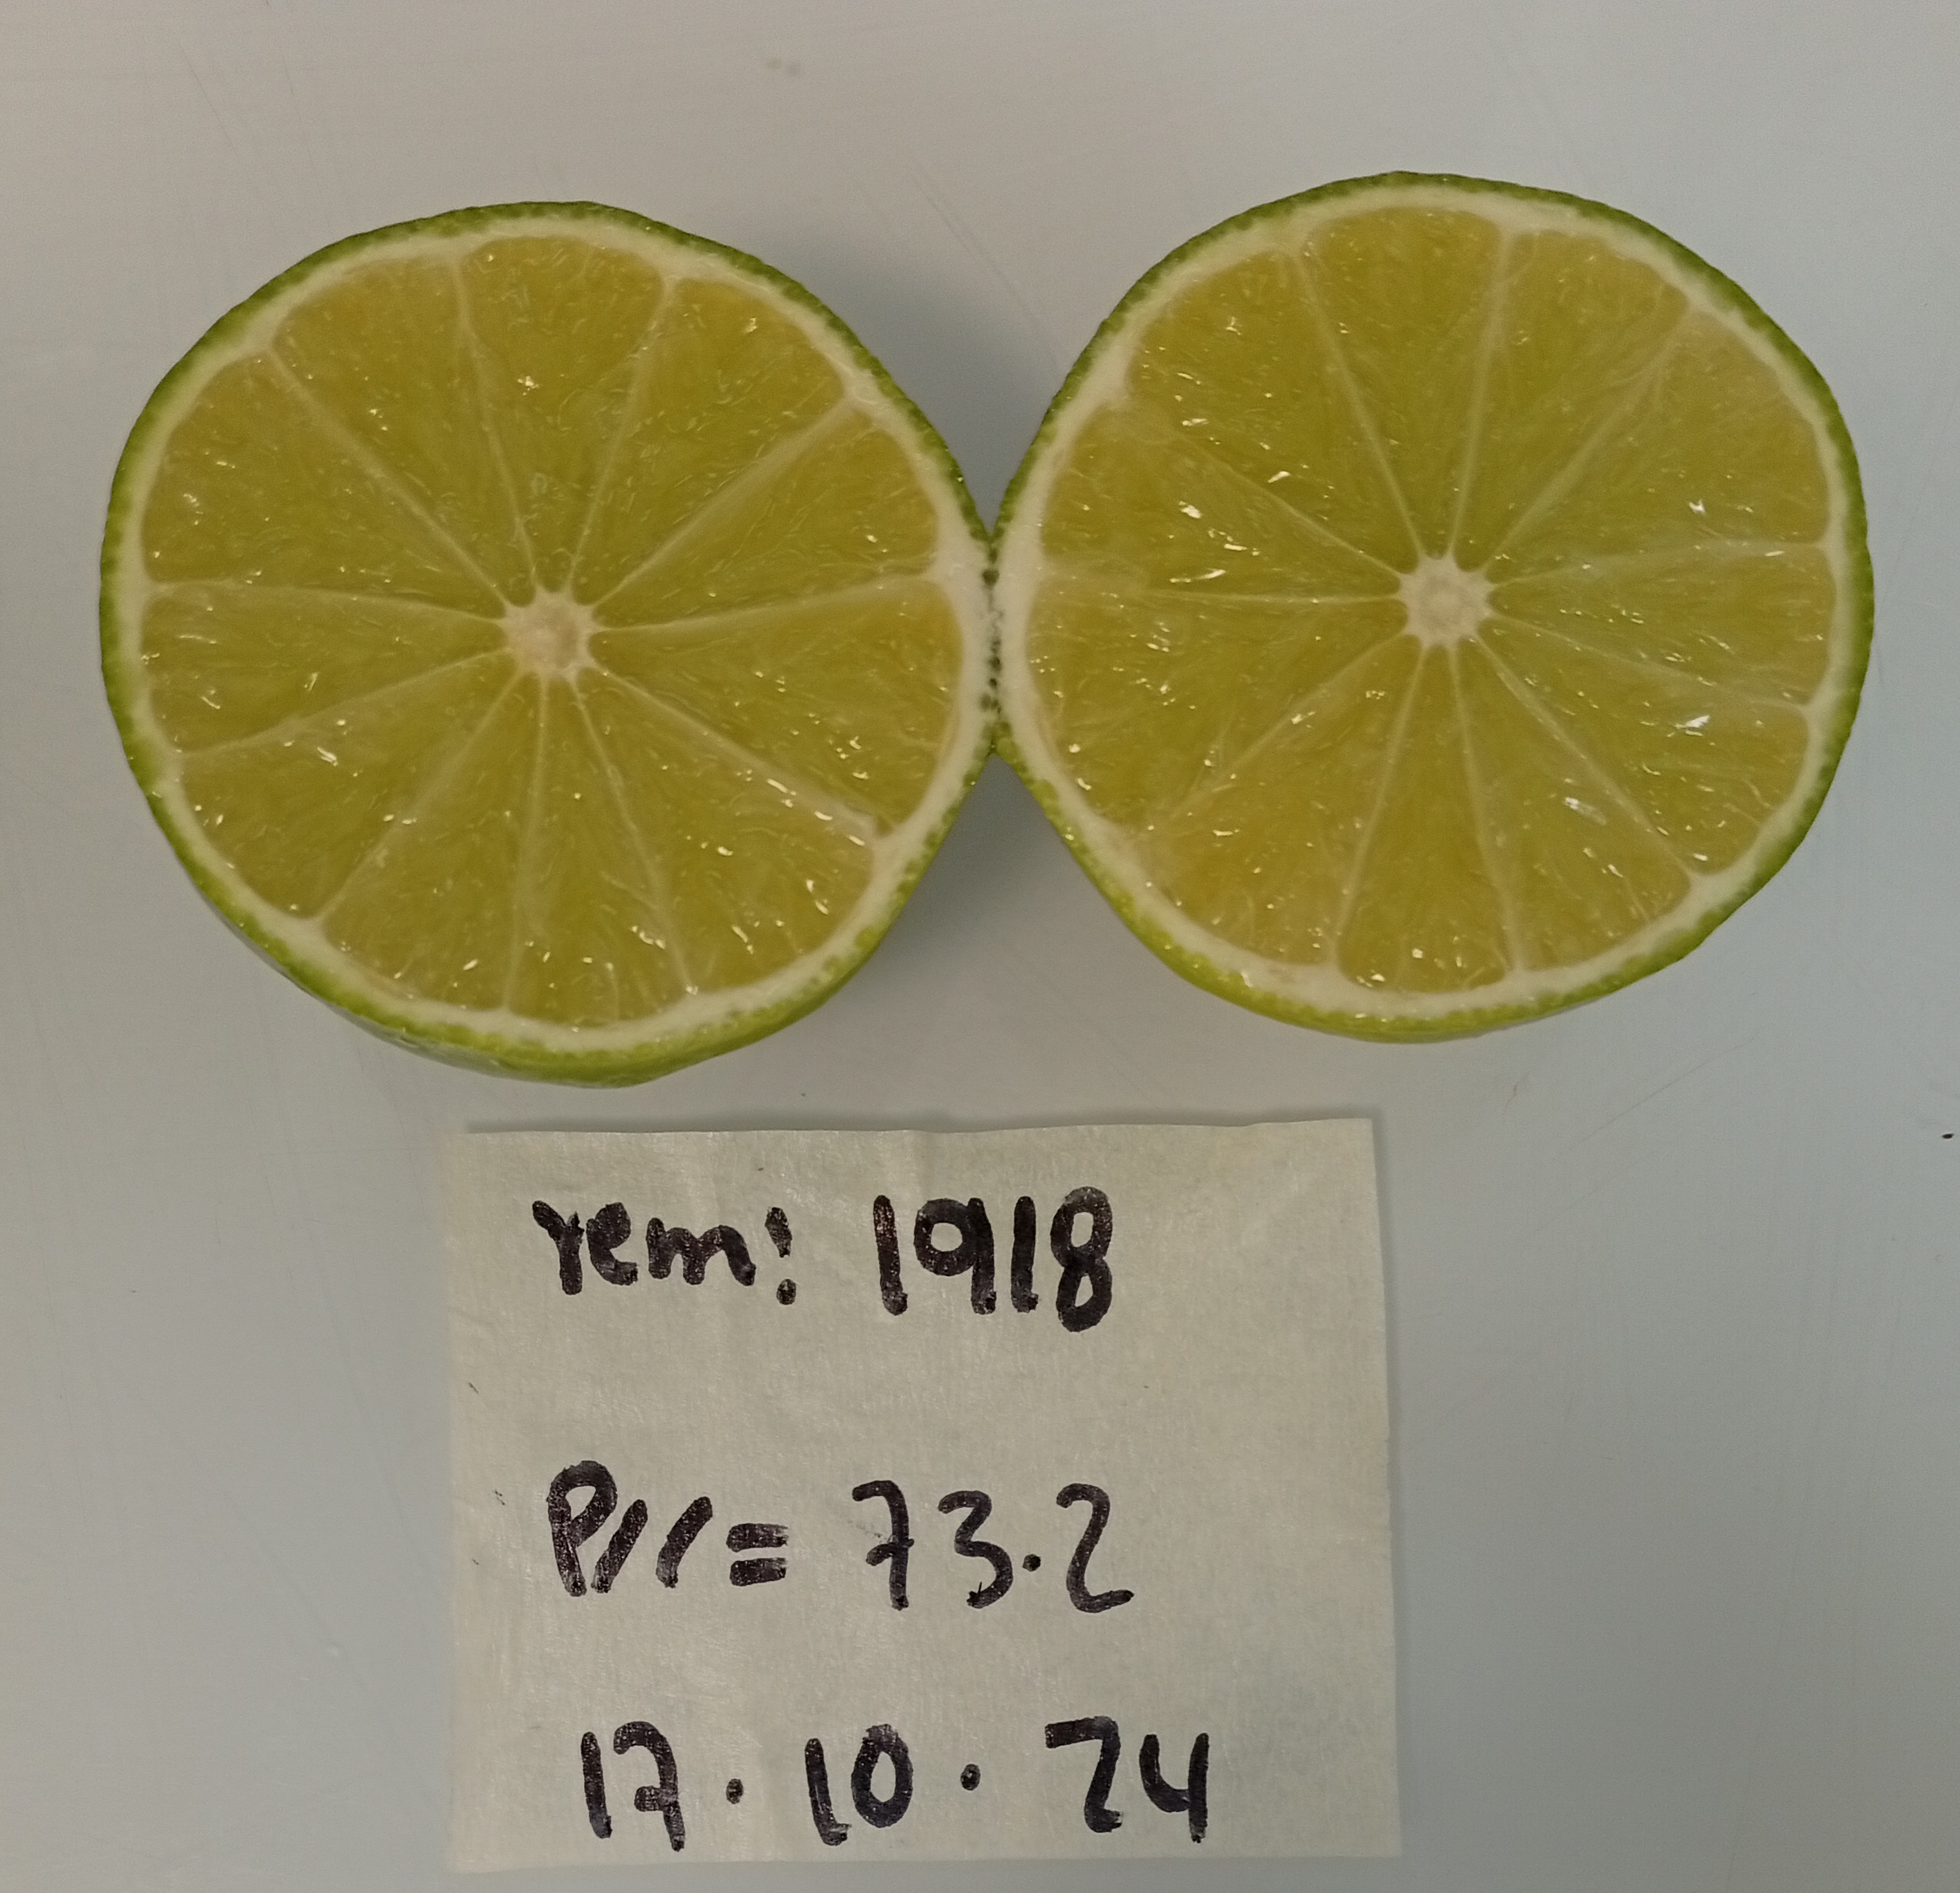 rem: 1918
P11= 73.2
17.10.24